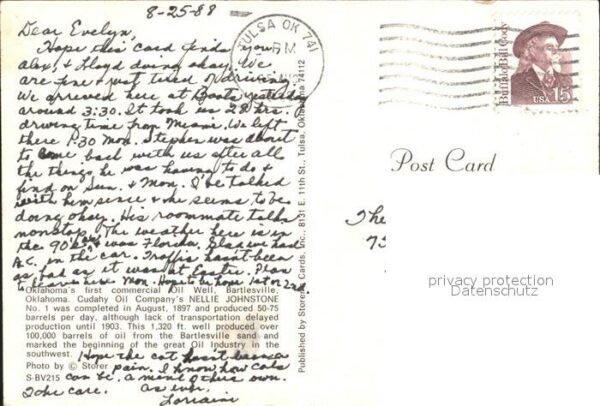 8-25-88
Dear Evelyn,
Hope this card finds you,
Alex, & Floyd doing okay. We
are fine & just tired of driving.
We arrived here at Boats yesterday
around 3:30. It took us 28 hrs.
driving time from Miami. We left
there 1:30 Mon. Stephen was about
to come back with us after all
the things he was having to do &
find on Sun. & Mon. I've talked
with him since & he seems to be
doing okay. His roommate talks
nonstop. The weather here is in
the 90's was Florida. Glad we had
A.C. in the car. Traffic hasn't been
as bad as it was at Easter. Plan
to leave here Mon. Hope to be home 1st or 2nd.
Oklahoma's first commercial Oil Well, Bartlesville,
Oklahoma. Cudahy Oil Company's NELLIE JOHNSTONE
No. 1 was completed in August, 1897 and produced 50-75
barrels per day, although lack of transportation delayed
production until 1903. This 1,320 ft. well produced over
100,000 barrels of oil from the Bartlesville sand and
marked the beginning of the great Oil Industry in the
southwest.
Photo by © Storer
S-BV215
Hope the cat hasn't been a
pain. I know how cats
can be. a mind of their own.
Take care. As ever,
Lorraine
Published by Storer Cards, Inc., 8131 E. 11th St., Tulsa, Oklahoma 74112
TULSA OK 741
PM
Buffalo Bill Cody
USA 15
Post Card
The
75
privacy protection
Datenschutz